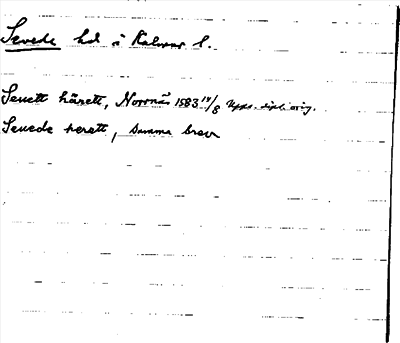 Sevede hd i Kalmar l.
Seuett härett, Norrnäs 1583 14/8 Upps. dipl. orig.
Seuede herett, samma brev